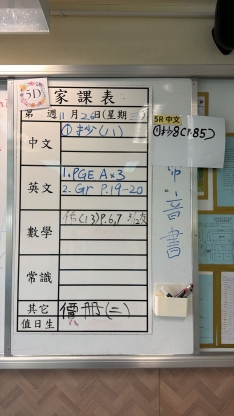 5D
家課表
第 週 11月26日(星期三)
中文 ①抄(八)
英文 1. PGE A×3
2. Gr P.19-20
數學 P.6,7
常識
其它 冊(二)
值日生
5R 中文
①抄8(P.85)
音
書